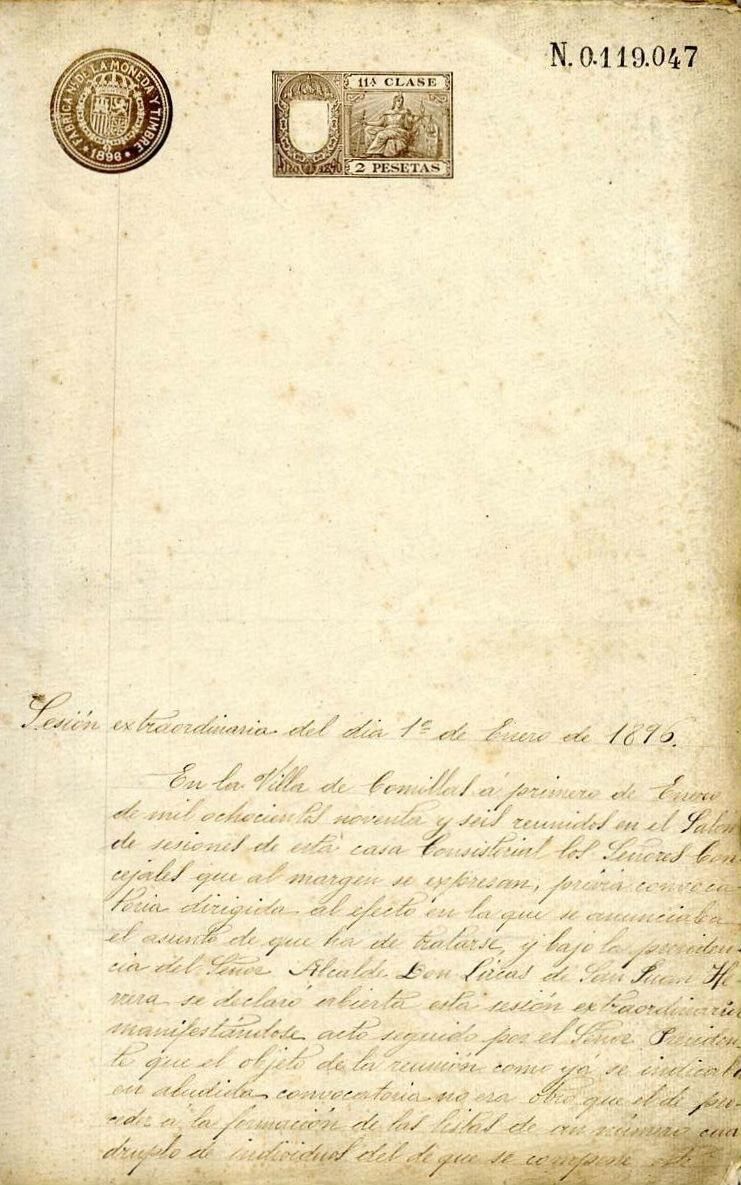 N. 0.119.047
FABRICA N. DE LA MONEDA Y TIMBRE
1896
11ª CLASE
2 PESETAS
Sesión extraordinaria del dia 1º de Enero de 1896.
En la Villa de Comillas á primero de Enero
de mil ochocientos noventa y seis reunidos en el Salón
de sesiones de esta casa Consistorial los Señores Con-
cejales que al margen se expresan, prévia convoca-
toria dirigida al efecto en la que se anunciaba
el asunto de que ha de tratarse, y bajo la presiden-
cia del Señor Alcalde Don Lúcas de San Juan He-
rrera se declaró abierta esta sesión extraordinaria
manifestándose acto seguido por el Señor Presiden-
te que el objeto de la reunión como yá se indicaba
en aludida convocatoria no era otro que el de pro-
ceder á la formación de las listas de un número cua-
druplo de individuos del de que se compone este